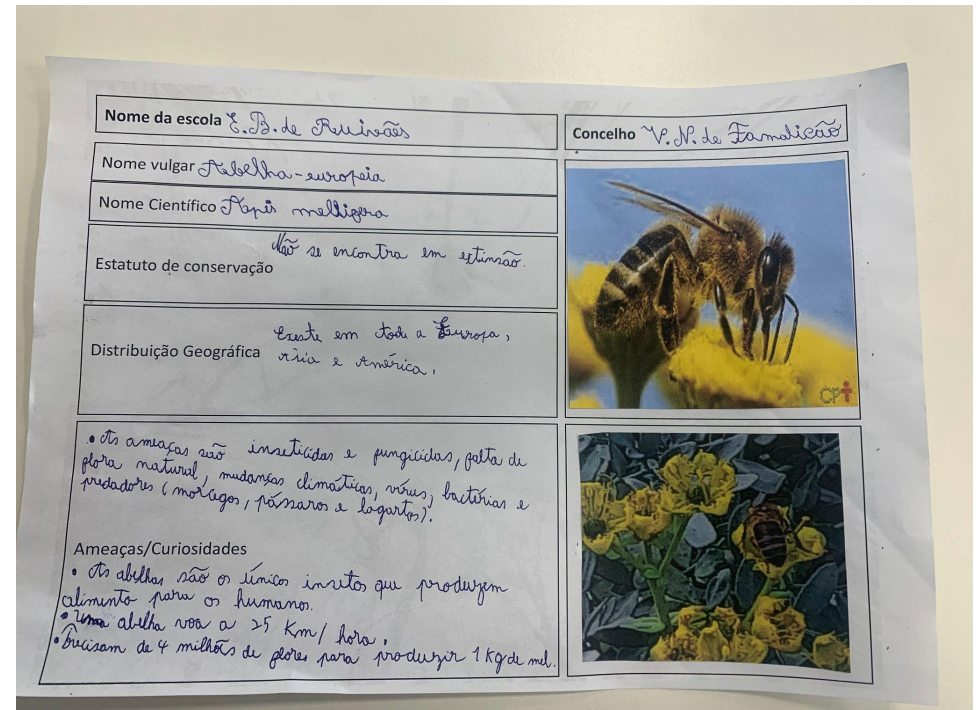 Nome da escola E.B. de Ruivães
Concelho V.N. de Famalicão
Nome vulgar Abelha-europeia
Nome Científico Apis mellifera
Estatuto de conservação Não se encontra em extinsão.
Distribuição Geográfica
Existe em toda a Europa,
Ásia e América.
CPT
• As ameaças são inseticidas e fungicidas, falta de
flora natural, mudanças climáticas, vírus, bactérias e
predadores (morcegos, pássaros e lagartos).
Ameaças/Curiosidades
• As abelhas são os únicos insetos que produzem
alimento para os humanos.
• Uma abelha voa a 25 Km/hora.
• Precisam de 4 milhões de flores para produzir 1 kg de mel.